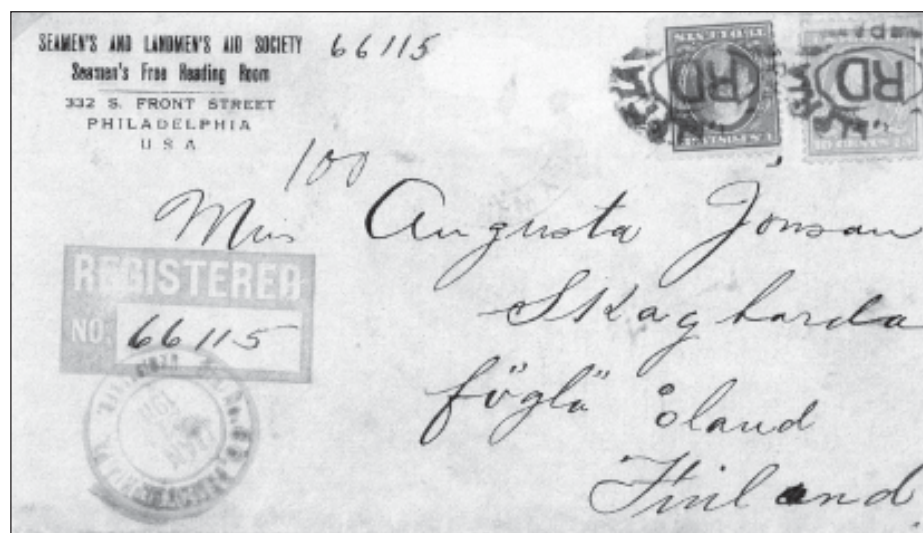 SEAMEN'S AND LANDMEN'S AID SOCIETY
Seamen's Free Reading Room
332 S. FRONT STREET
PHILADELPHIA
U S A
66115
RD
RD
10 CENTS 10
100
Miss Augusta Jonsan
Skagharda
föglö åland
Finland
REGISTERED
NO. 66115